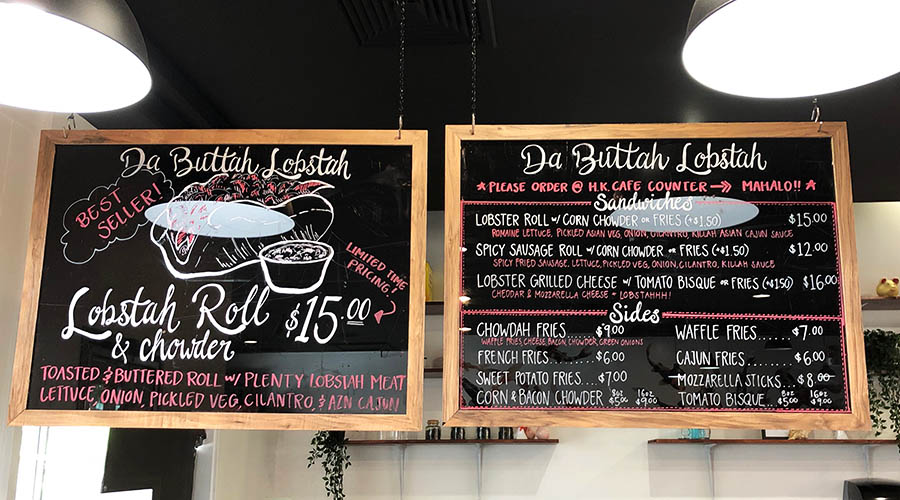 Da Buttah Lobstah
BEST SELLER!
LIMITED TIME PRICING.
Lobstah Roll
& chowder - $15.00
TOASTED & BUTTERED ROLL W/ PLENTY LOBSTAH MEAT
LETTUCE, ONION, PICKLED VEG, CILANTRO, & AZN CAJUN
Da Buttah Lobstah
*PLEASE ORDER @ H.K. CAFE COUNTER → MAHALO!! *
Sandwiches
LOBSTER ROLL W/ CORN CHOWDER OR FRIES (+$1.50) $15.00
ROMAINE LETTUCE, PICKLED ASIAN VEG, ONION, CILANTRO, KILLAH ASIAN CAJUN SAUCE
SPICY SAUSAGE ROLL W/ CORN CHOWDER OR FRIES (+$1.50) $12.00
SPICY FRIED SAUSAGE, LETTUCE, PICKLED VEG, ONION, CILANTRO, KILLAH SAUCE
LOBSTER GRILLED CHEESE W/ TOMATO BISQUE OR FRIES (+$1.50) $16.00
CHEDDAR & MOZZARELLA CHEESE + LOBSTAHHH!
Sides
CHOWDAH FRIES $9.00
WAFFLE FRIES, CHEESE, BACON, CHOWDER, GREEN ONIONS
FRENCH FRIES.....$6.00
SWEET POTATO FRIES...$7.00
CORN & BACON CHOWDER 8oz $5.00 16oz $9.00
WAFFLE FRIES.....$7.00
CAJUN FRIES.....$6.00
MOZZARELLA STICKS...$8.00
TOMATO BISQUE.. 8oz $5.00 16oz $9.00